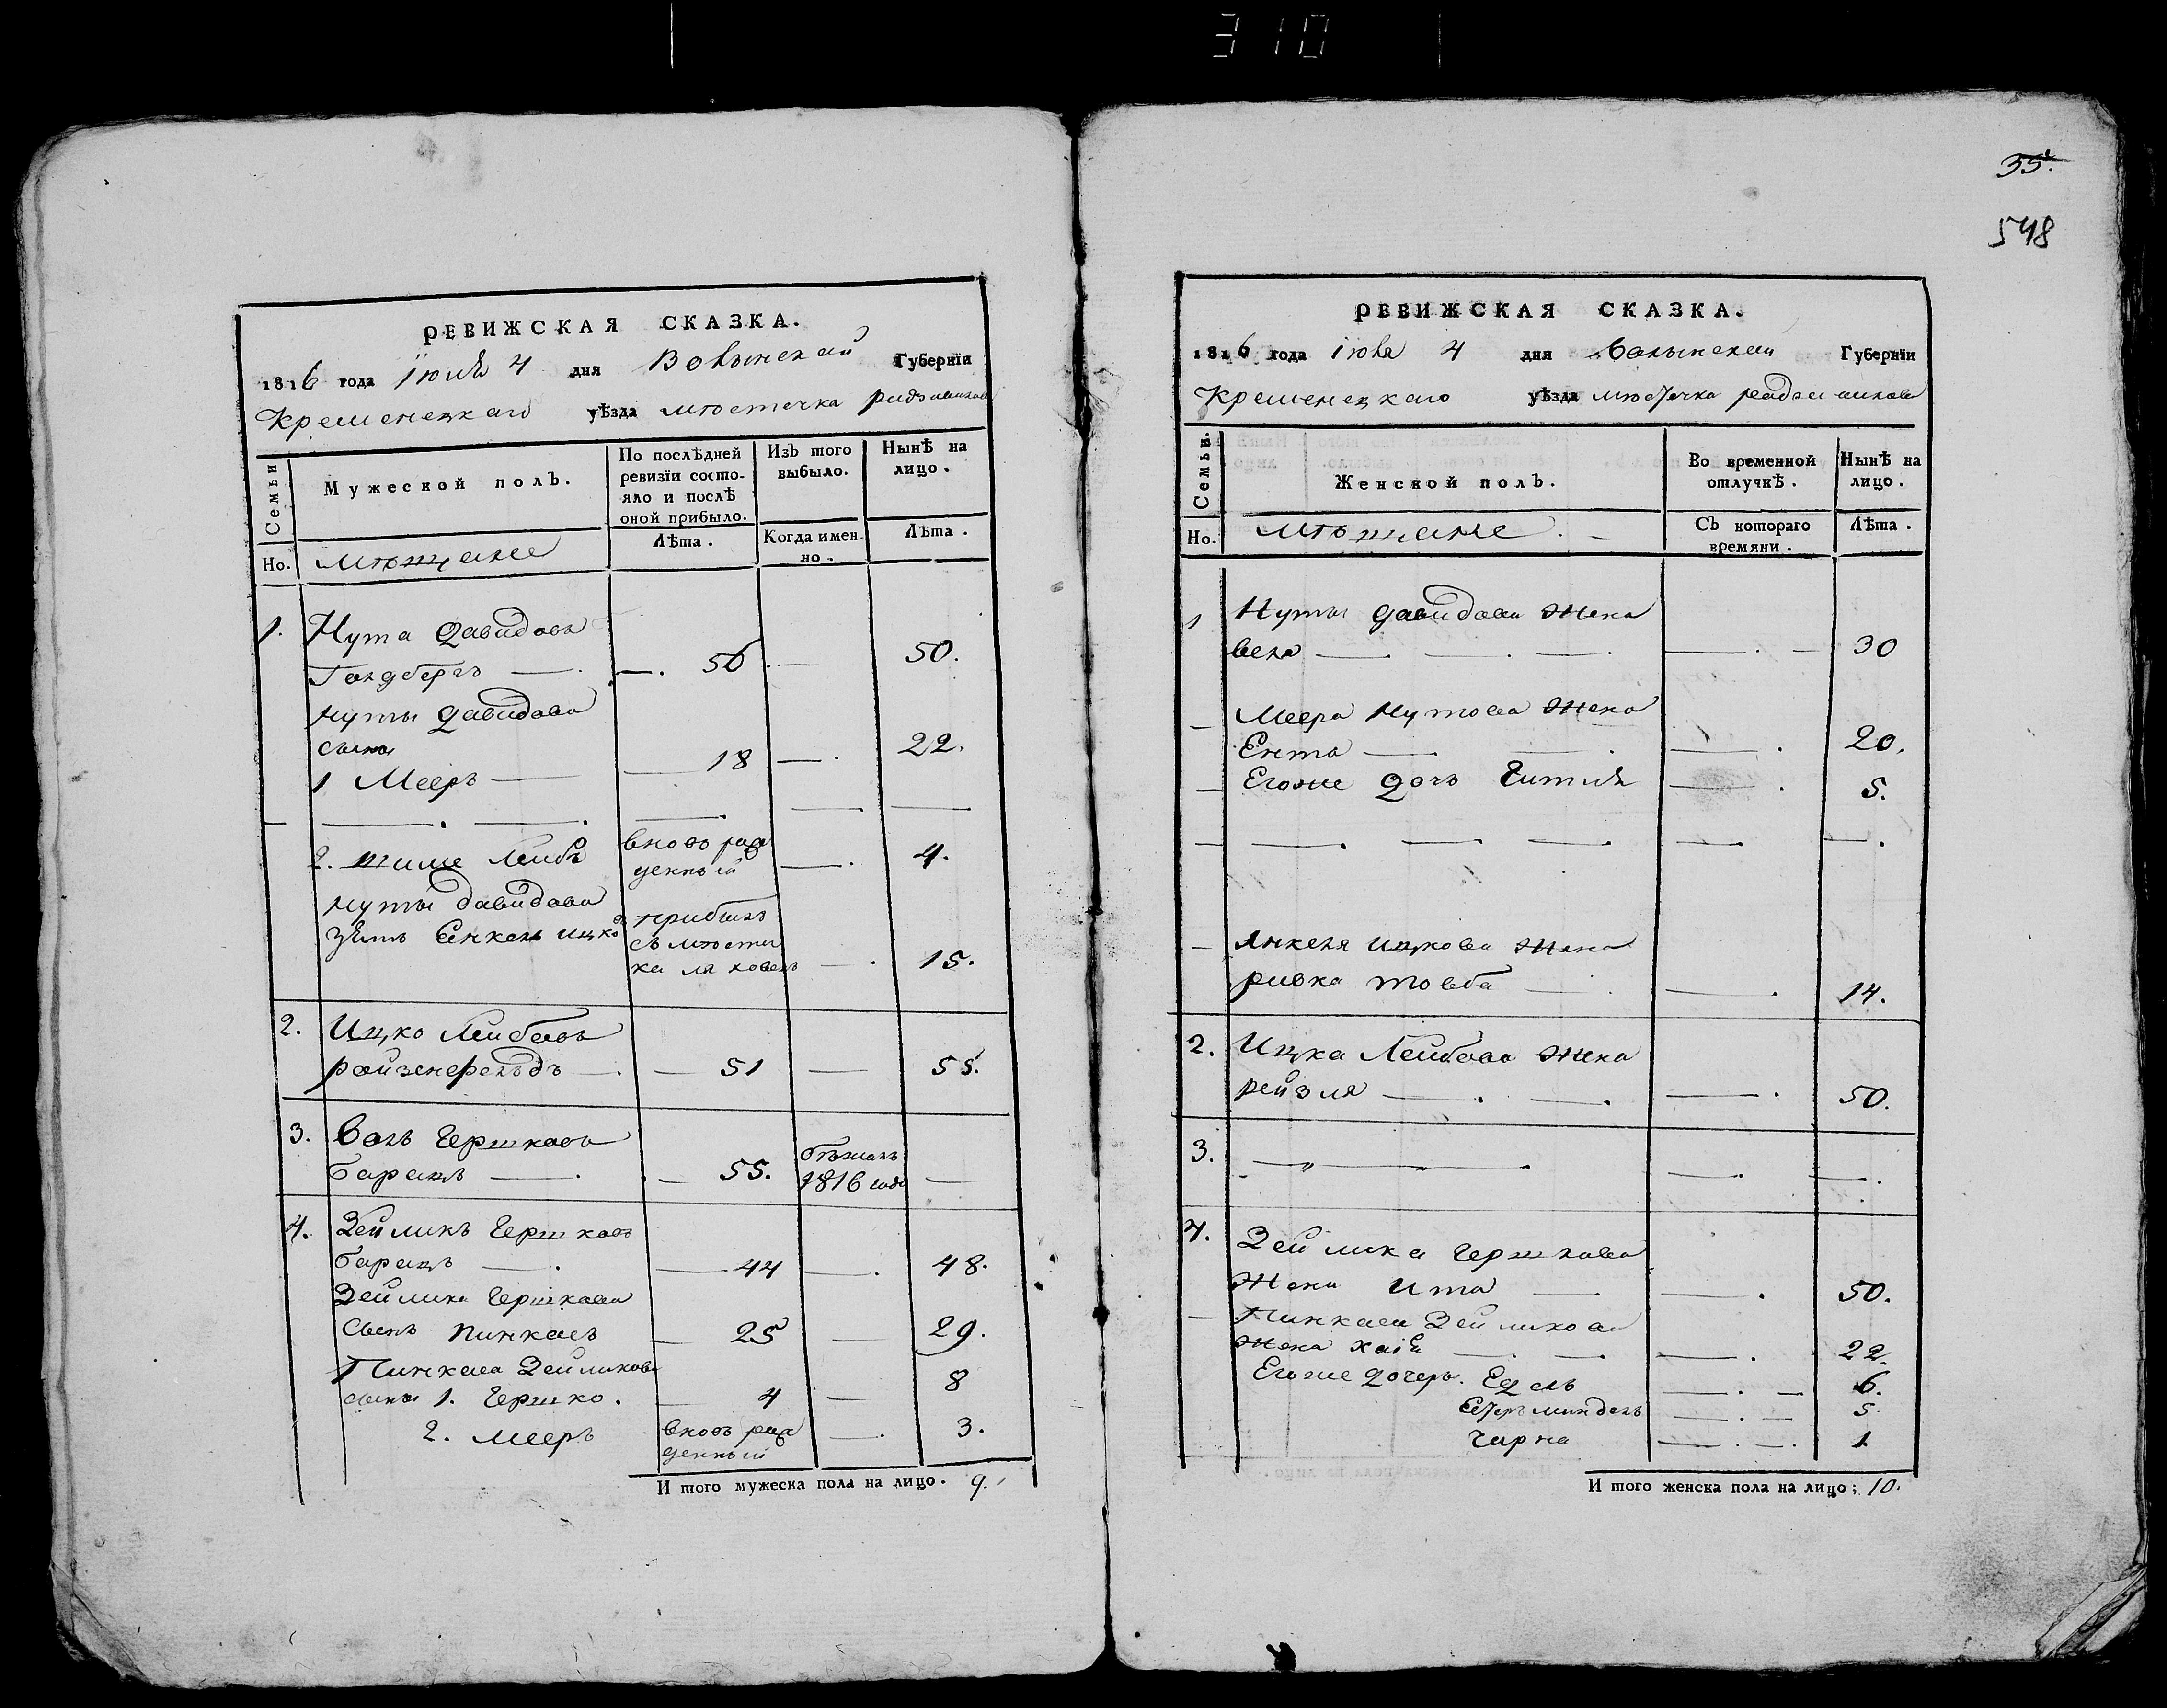 310
55.
548
РЕВИЖСКАЯ СКАЗКА.
1816 года Іюля 4 дня Волынской Губернїи
Кременецкаго уѣзда мѣстечка
Семьи
Мужеской полъ.
По послѣдней ревизїи состояло и послѣ оной прибыло.
Изъ того выбыло.
Нынѣ на лицо.
Но.
мѣщане
Лѣта.
Когда именно.
Лѣта.
1. Нута Давидовъ
Голдбергъ — 56 — 50.
Нуты Давидова
сыны
1 Мееръ — 18 — 22.
2. Лейбъ вновь рожденный — 4.
Нуты Давидова
зять Енкель Ицков прибылъ
съ местечка Ляховецъ — 15.
2. Ицко Лейбовъ
ройзенфельдъ — 51 — 55.
3. Волъ Гершковъ
барацъ — 55. бѣжалъ 1816 года —
4. Зейликъ Гершковъ
барацъ — 44 — 48.
Зейлика Гершкова
сынъ Пинкасъ — 25 — 29.
Пинкаса Зейликова 8
сыны 1. Гершко. 4 —
2. Мееръ вновь рожденный — 3.
И того мужеска пола на лицо. 9.
РЕВИЖСКАЯ СКАЗКА.
1816 года іюля 4 дня Волынской Губернїи
Кременецкаго уѣзда мѣстечка
Семьи.
Женской полъ.
Во временной отлучкѣ.
Нынѣ на лицо.
Но.
мѣщане.
Съ котораго времяни.
Лѣта.
1 Нуты Давидова жена
бела — 30
Меера Нутова жена
Ента — 20.
Егоже дочь Гитля — 5.
Янкеля Ицкова жена
ривка товба — 14.
2. Ицка Лейбова жена
рейзля — 50.
3. —
4. Зейлика Гершкова
жена Ита — 50.
Пинкаса Зейликова
жена Хая — 22.
Егоже дочерь. Едель — 6.
Естеръ миндель — 5
Чарна — 1.
И того женска пола на лицо; 10.